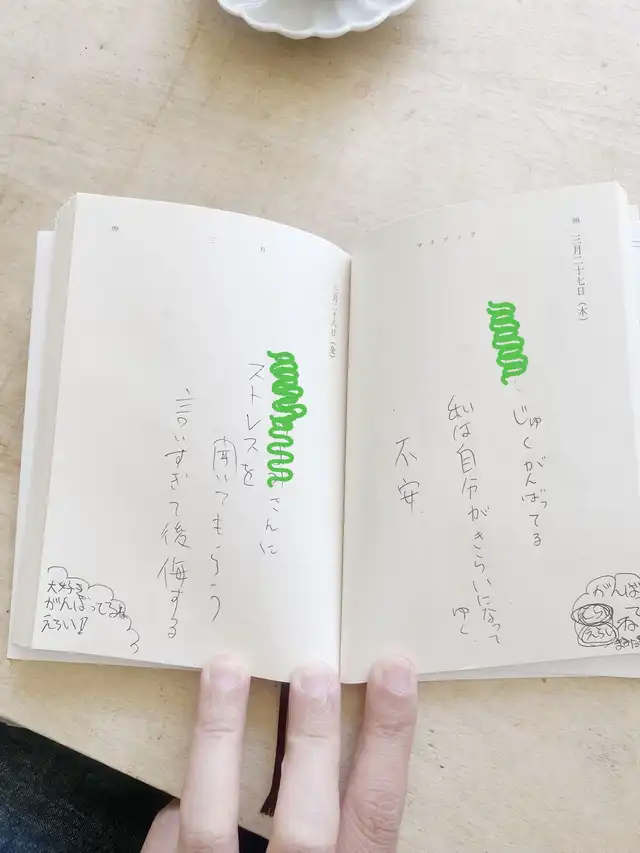 98
三月二十七日(木)
じゅくがんばってる
私は自分がきらいになって
ゆく
不安
マイブック
がんば
て
ね
三月二十八日(金)
さんに
ストレスを
聞いてもらう
言いすぎて後悔する
三月
99
大好き
がんばってるね
えらい!